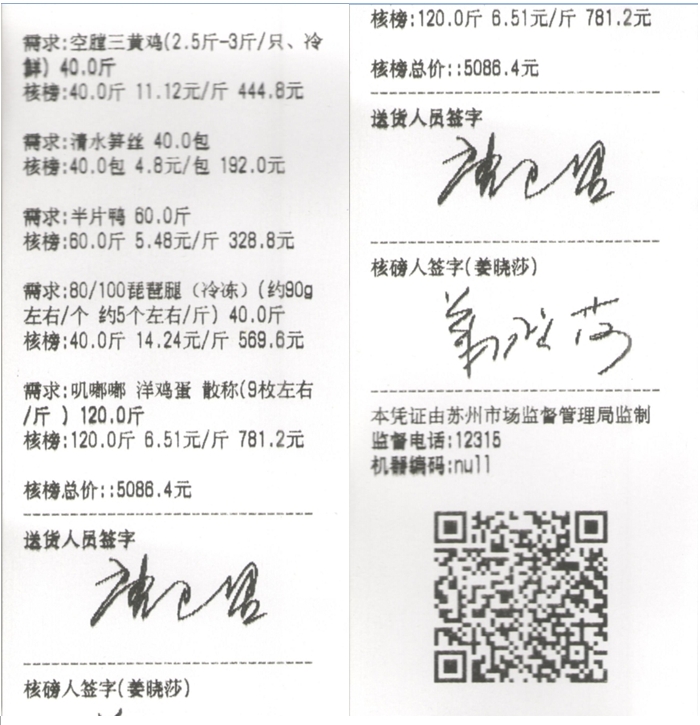 需求:空膛三黄鸡(2.5斤-3斤/只、冷
鲜) 40.0斤
核榜:40.0斤 11.12元/斤 444.8元
需求:清水笋丝 40.0包
核榜:40.0包 4.8元/包 192.0元
需求:半片鸭 60.0斤
核榜:60.0斤 5.48元/斤 328.8元
需求:80/100琵琶腿（冷冻）(约90g
左右/个 约5个左右/斤) 40.0斤
核榜:40.0斤 14.24元/斤 569.6元
需求:叽嘟嘟 洋鸡蛋 散称(9枚左右
/斤 ) 120.0斤
核榜:120.0斤 6.51元/斤 781.2元
核榜总价::5086.4元
送货人员签字
核磅人签字(姜晓莎)
核榜:120.0斤 6.51元/斤 781.2元
核榜总价::5086.4元
送货人员签字
核磅人签字(姜晓莎)
姜晓莎
本凭证由苏州市场监督管理局监制
监督电话:12315
机器编码:null